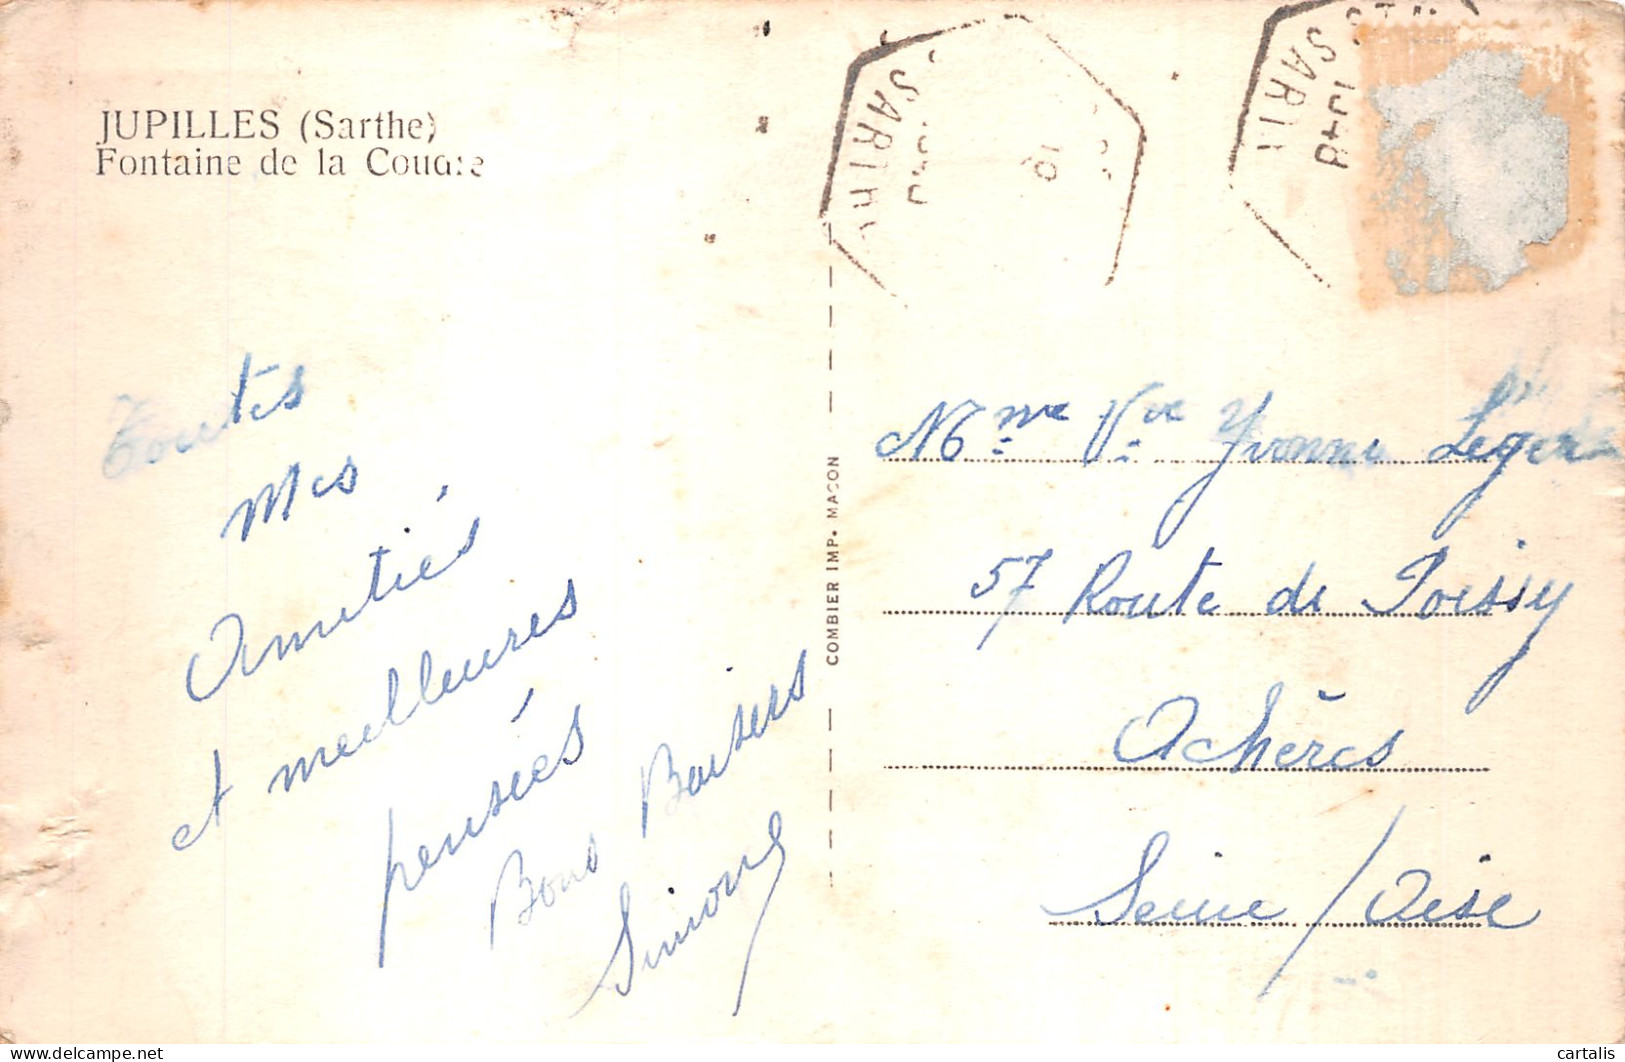 JUPILLES (Sarthe)
Fontaine de la Coudre
Toutes
mes
Amitiés
et meilleures
pensées
Bons Baisers
Simone
COMBIER IMP. MACON
SARTHE
SARTH
Mme Vve Yvonne Leger
57 Route de Poissy
Achères
Seine / Oise
www.delcampe.net
cartalis